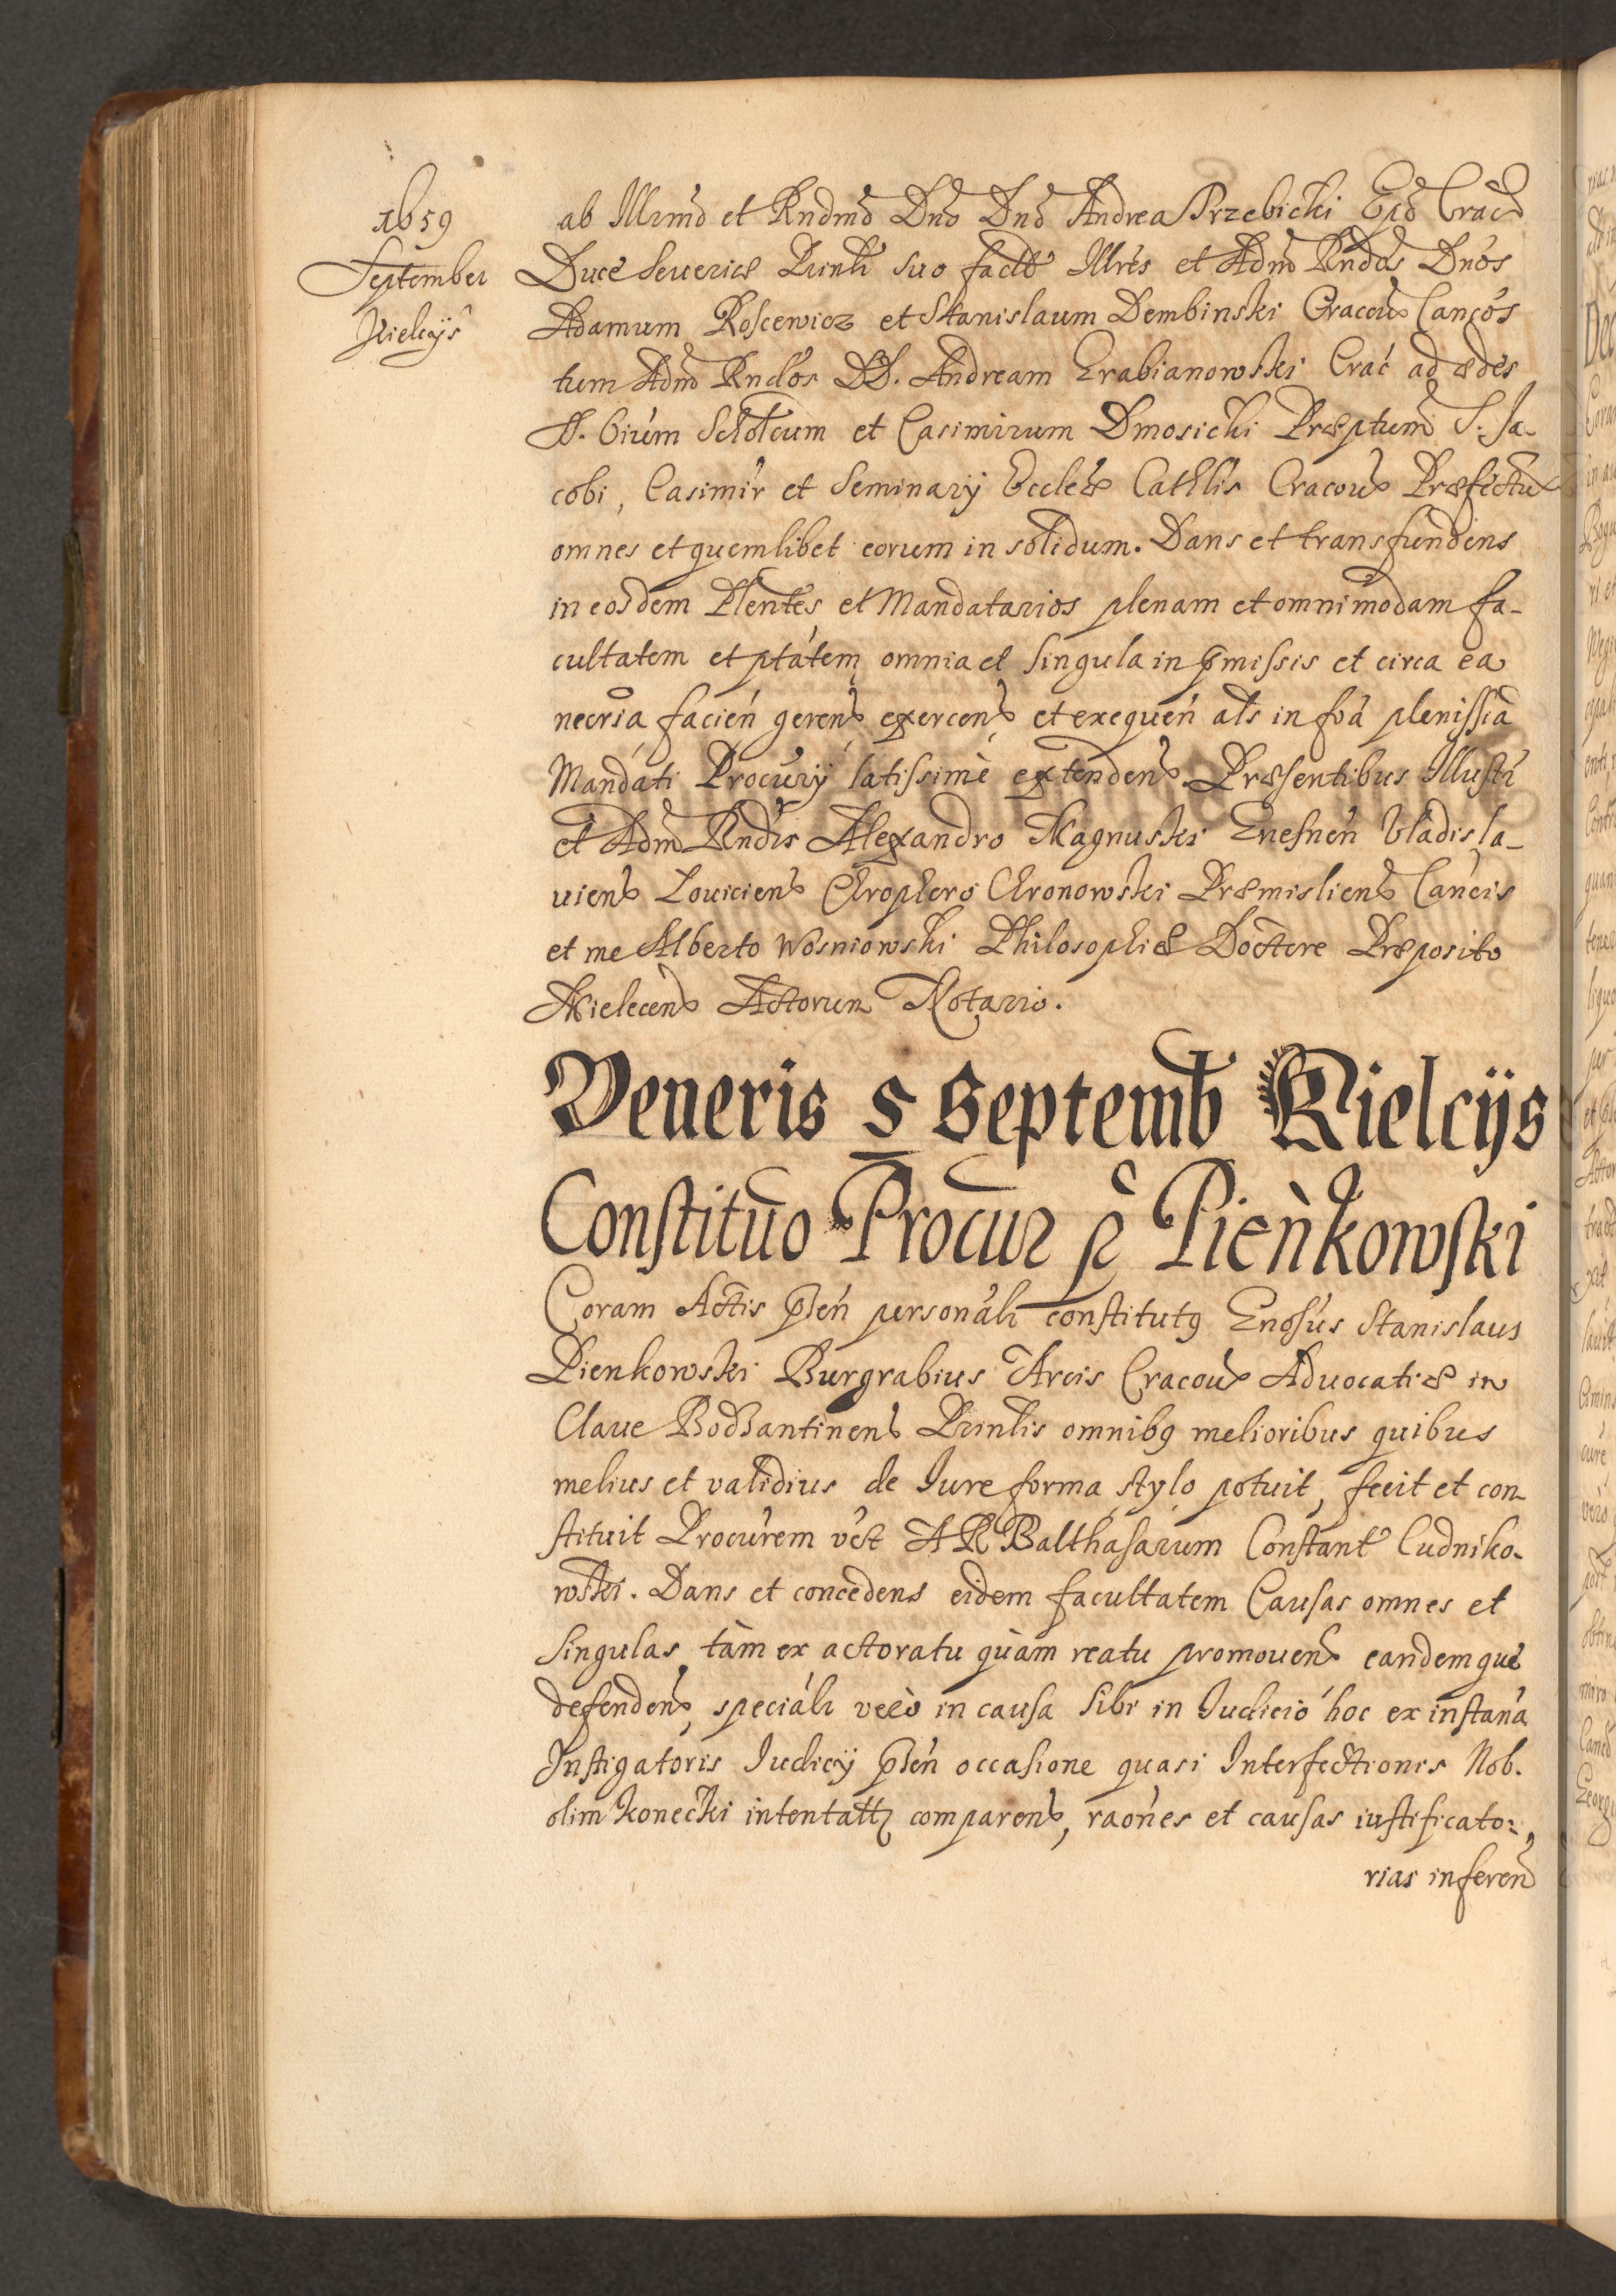 1659
September
Kielcijs
ab Illrmo et Rndmo Dno Dno Andrea Trzebicki Epo Cracou
Duce Seueriæ Prinli suo factt Illres et Adm Rndos Dnos
Adamum Roscewicz et Stanislaum Dembinski Cracou Cancos
tum Adm Rndos DD. Andream Grabianowski Crac ad ædes
SS. Oium Schólcum et Casimirum Dmosicki Præptum S. Ja-
cobi, Casimir et Seminarÿ Eccleæ Cathlis Cracou Præfectu
omnes et quemlibet eorum in solidum. Dans et transfundens
in eosdem Plentes et Mandatarios plenam et omnimodam fa-
cultatem et ptátem omnia et singula in pmissis et circa ea
necria facień gerens exercens et exequeń als in foá plenissia
Mandati Procurÿ latissimè extendens. Præsentibus Illustr
et Adm Rndis Alexandro Magnuski Gnesneń Vladisla-
uiens Louiciens Chrophero Chronowski Præmisliens Cancis
et me Alberto Wosniowski Philosophiæ Doctore Præposito
Kielecens Actorum Notario.
Veneris 5 Septemb Kielcijs
Constituo Procur p Pieńkowski
Coram Actis pseń personali constitutq Gnosus Stanislaus
Pienkowski Burgrabius Arcis Cracou Aduocatiæ in
Claue Bodzantinens Prinlis omnibq melioribus quibus
melius et validius de Iure forma stylo potuit, fecit et con-
stituit Procurem vest AR Balthasarum Constant Cudniko-
wski. Dans et concedens eidem facultatem Causas omnes et
singulas tàm ex actoratu quàm reatu promouens eandemque
defendens, speciali verò in causa sibi in Iudicio hoc ex instana
Instigatoris Iudicÿ pseń occasione quasi Interfectionis Nob.
olim Konecki intentatt comparens, raones et causas iustificato-
rias inferen